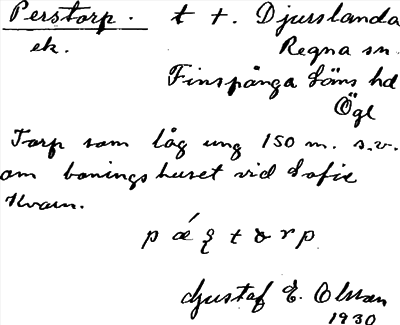 Perstorp. t †. Djurslanda
ek. Regna sn.
Finspånga läns hd
Ögl
Torp som låg ung 150 m. s.v.
om boningshuset vid Sofie
Kvarn.
Gustaf E. Olsson
1930